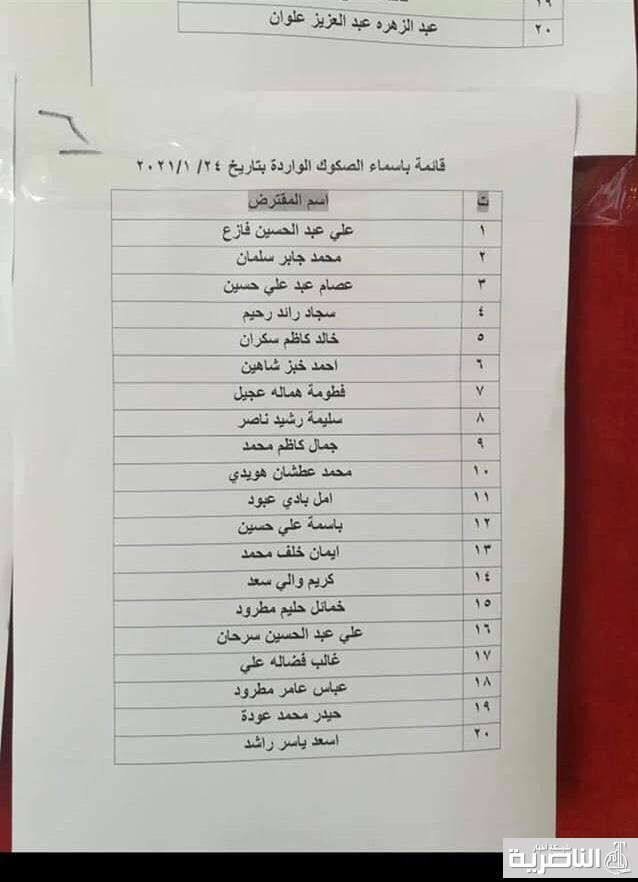 ١٩
٢٠ عبد الزهره عبد العزيز علوان
٦
قائمة باسماء الصكوك الواردة بتاريخ ٢٤/ ١/ ٢٠٢١
ت اسم المقترض
١ علي عبد الحسين فازع
٢ محمد جابر سلمان
٣ عصام عبد علي حسين
٤ سجاد رائد رحيم
٥ خالد كاظم سكران
٦ احمد خبز شاهين
٧ فطومة هماله عجيل
٨ سليمة رشيد ناصر
٩ جمال كاظم محمد
١٠ محمد عطشان هويدي
١١ امل بادي عبود
١٢ باسمة علي حسين
١٣ ايمان خلف محمد
١٤ كريم والي سعد
١٥ خمائل حليم مطرود
١٦ علي عبد الحسين سرحان
١٧ غالب فضاله علي
١٨ عباس عامر مطرود
١٩ حيدر محمد عودة
٢٠ اسعد ياسر راشد
شبكة أخبار
الناصرية